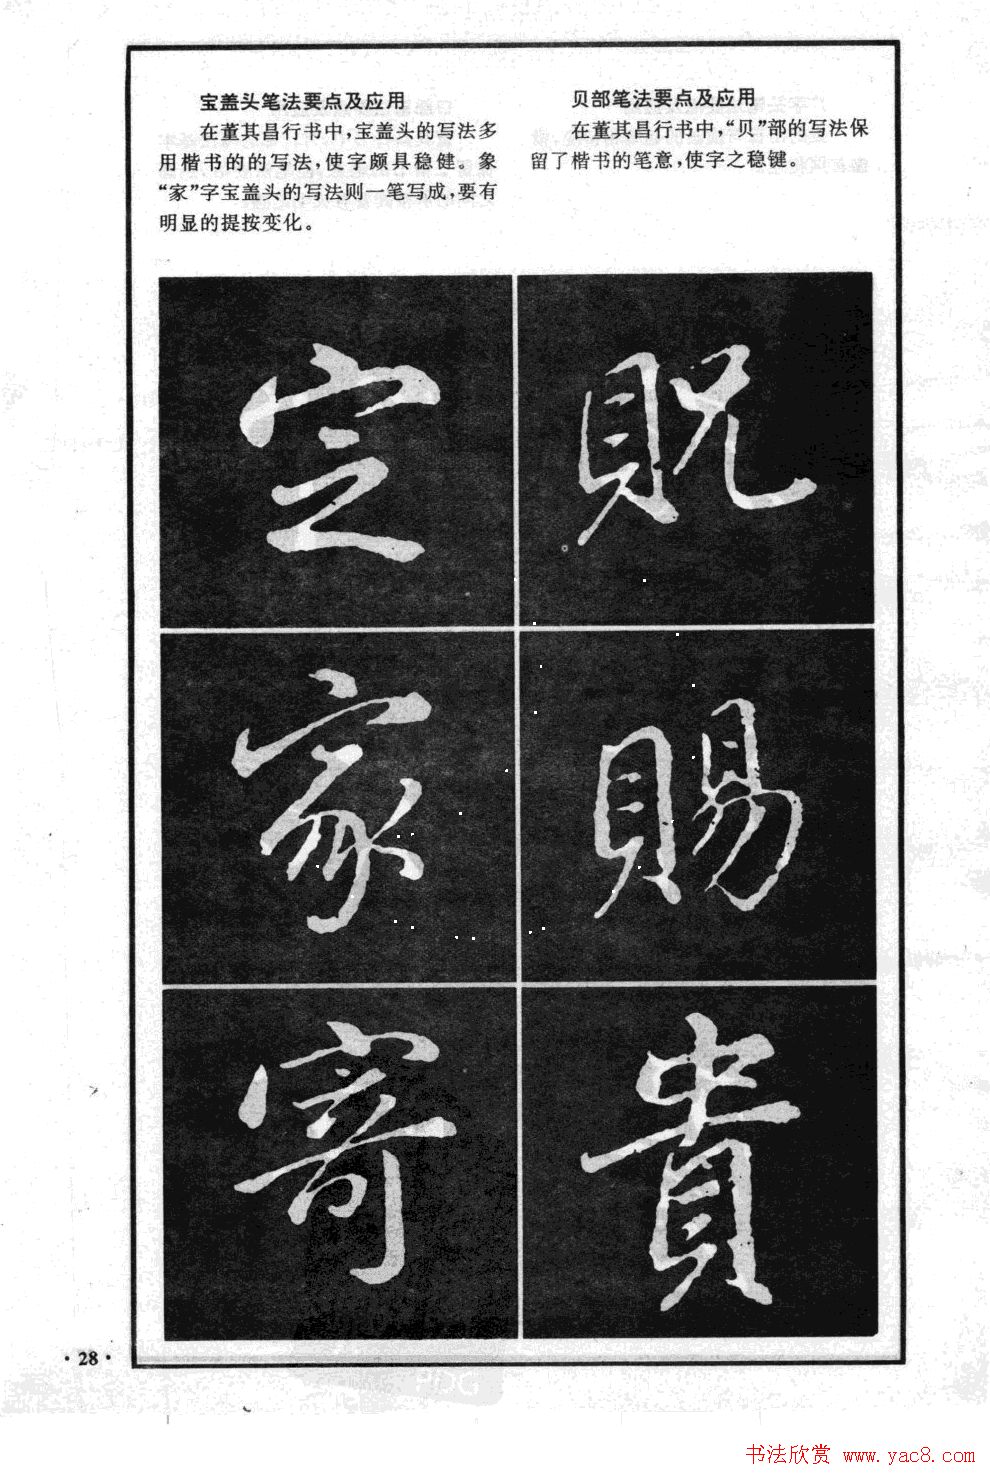 宝盖头笔法要点及应用
在董其昌行书中,宝盖头的写法多
用楷书的的写法,使字颇具稳健。象
“家”字宝盖头的写法则一笔写成,要有
明显的提按变化。
贝部笔法要点及应用
在董其昌行书中,“贝”部的写法保
留了楷书的笔意,使字之稳键。
定
貺
家
賜
寄
貴
·28·
PDG
书法欣赏 www.yac8.com